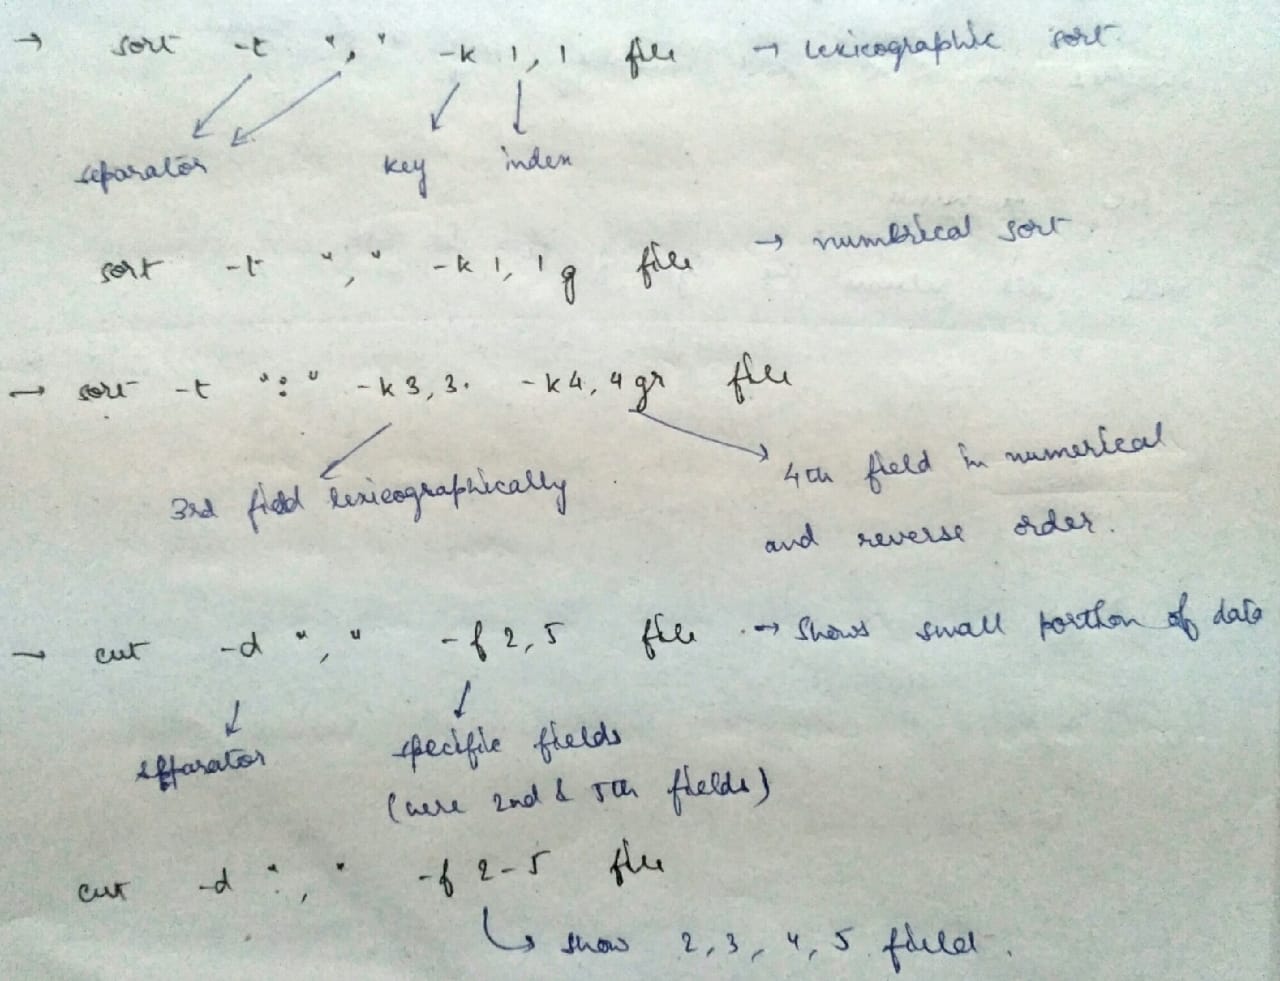 → sort -t "," -k 1,1 file → lexicographic sort
separator key index
sort -t "," -k 1,1g file → numerical sort
→ sort -t ":" -k3,3. -k4,4gr file
3rd field lexicographically
4th field in numerical
and reverse order.
→ cut -d "," -f 2,5 file → shows small portion of data
separator specific fields
(here 2nd & 5th fields)
cut -d "," -f 2-5 file
show 2,3,4,5 field.